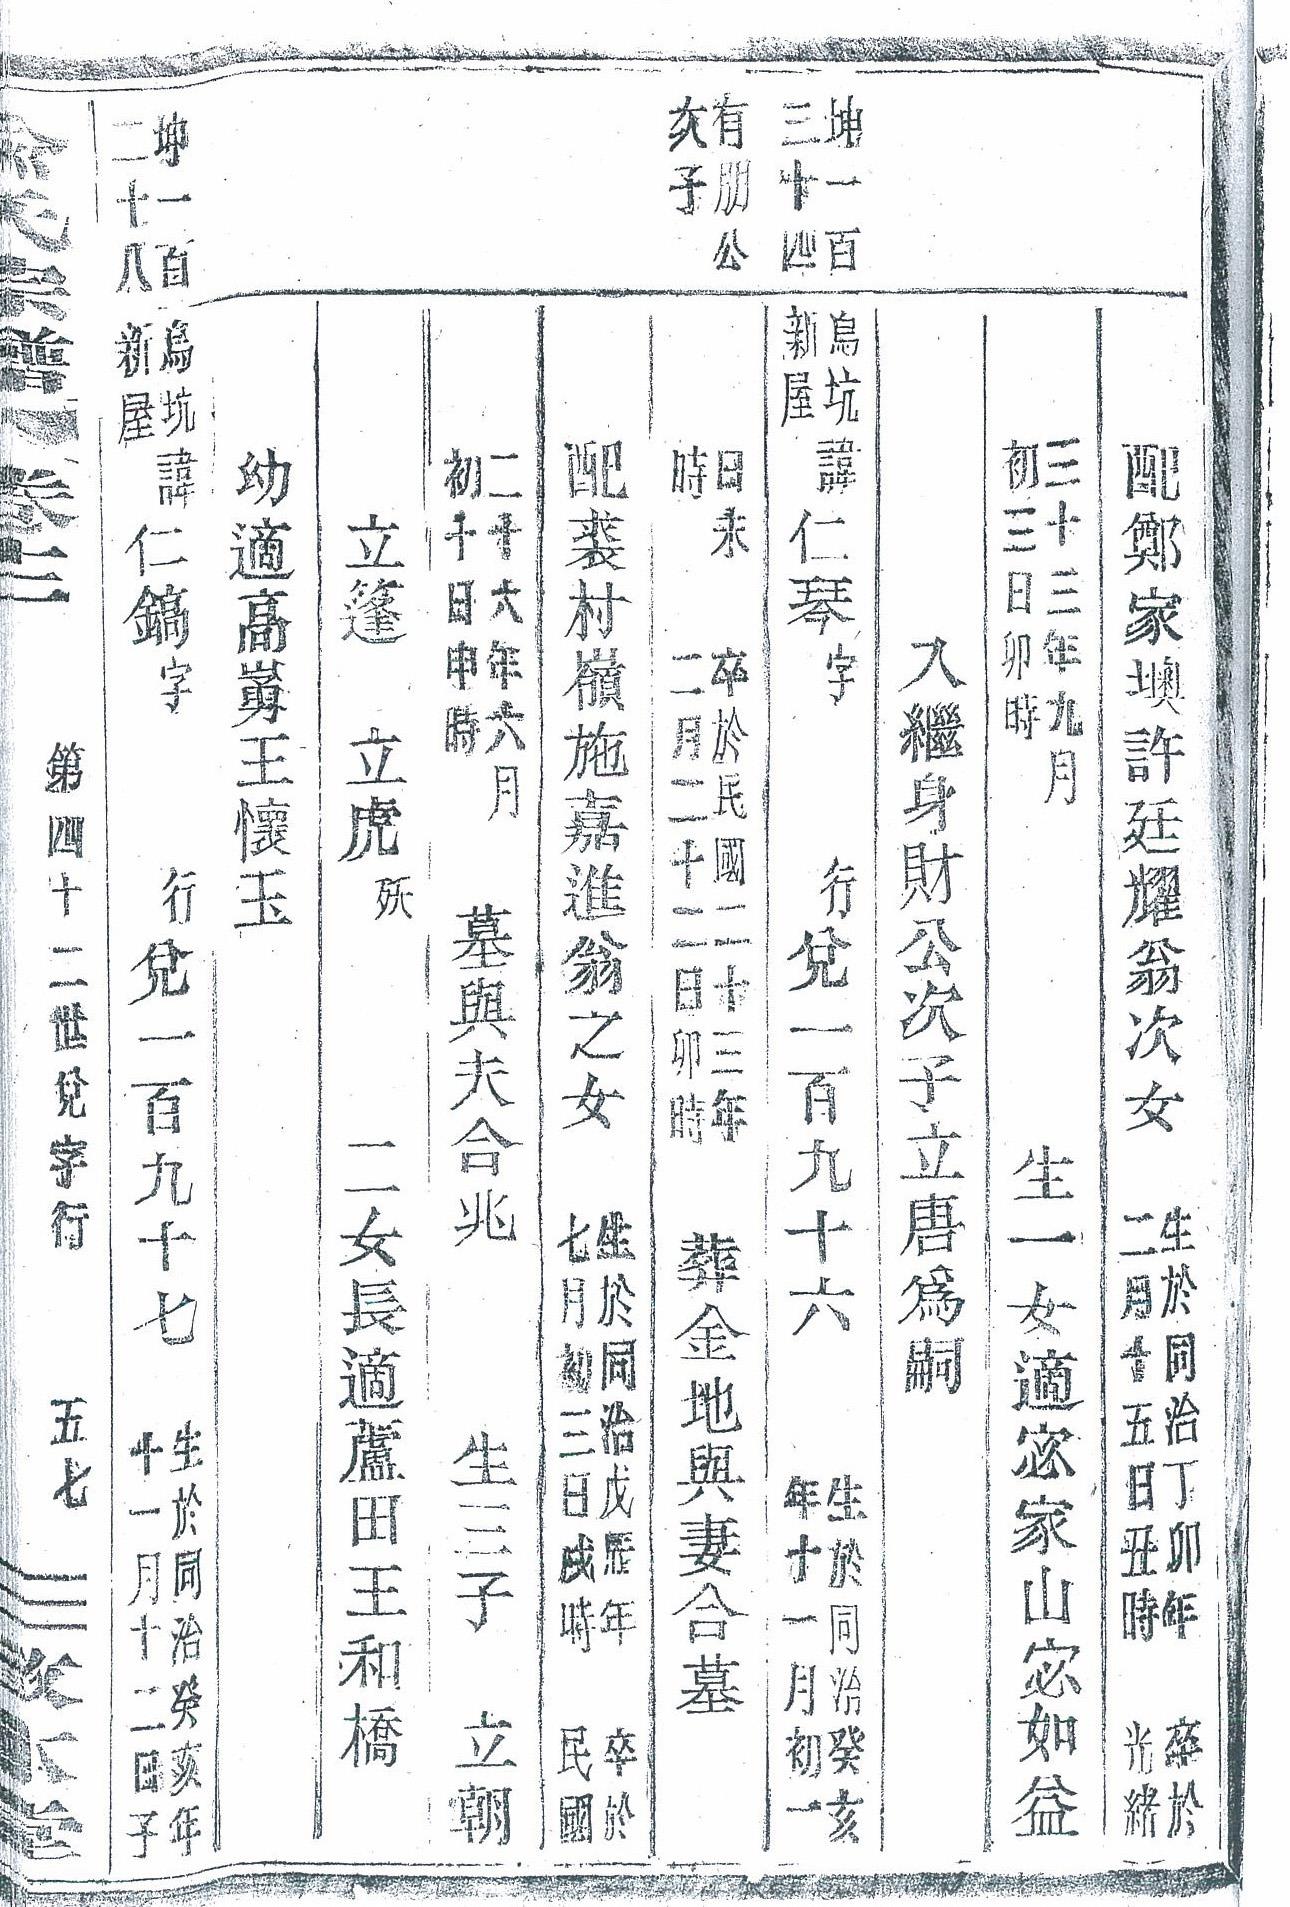 配鄭家墺許廷耀翁次女 生於同治丁卯年二月十五日丑時 卒於光緒
三十三年九月初三日卯時 生一女適宓家山宓如益
入繼身財公次子立唐為嗣
坤一百三十四 烏坑新屋 諱仁琴字 行兌一百九十六 生於同治癸亥年十一月初一
有朋公次子 日未時 卒於民國二十三年二月二十二日卯時 葬金地與妻合墓
配裘村嶺施嘉進翁之女 生於同治戊辰年七月初三日戌時 卒於民國
二十六年六月初十日申時 墓與夫合兆 生三子 立朝
立篷 立虎殀 二女長適蘆田王和橋
幼適高嶴王懷玉
坤一百二十八 烏坑新屋 諱仁鎬字 行兌一百九十七 生於同治癸亥年十一月十二日子
宗譜 卷二 第四十二世兌字行 五七